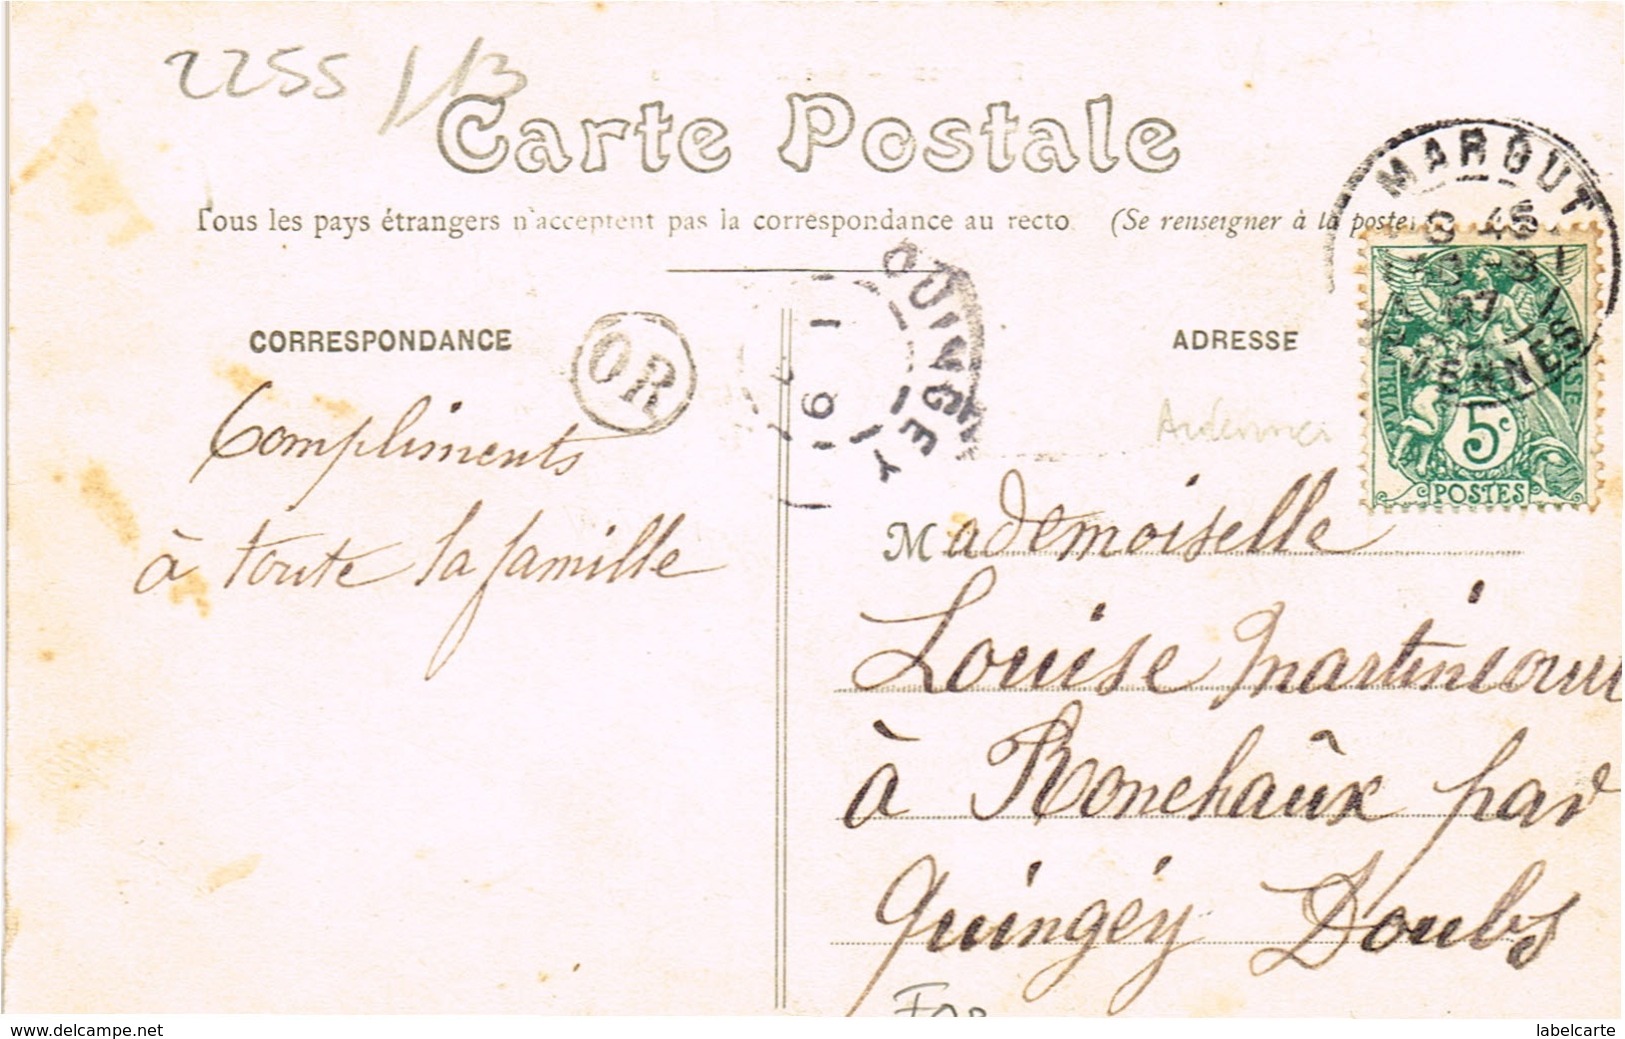 2255 / 13
Carte Postale
Tous les pays étrangers n'acceptent pas la correspondance au recto (Se renseigner à la poste)
MAROUT
8 45
07
QUINGEY
16 - 1
OR
CORRESPONDANCE
ADRESSE
5c
POSTES
Ardennes
Compliments
à toute la famille
Mademoiselle
Louise Martincourt
à Ronchaûx par
Quingéy Doubs
www.delcampe.net
labelcarte